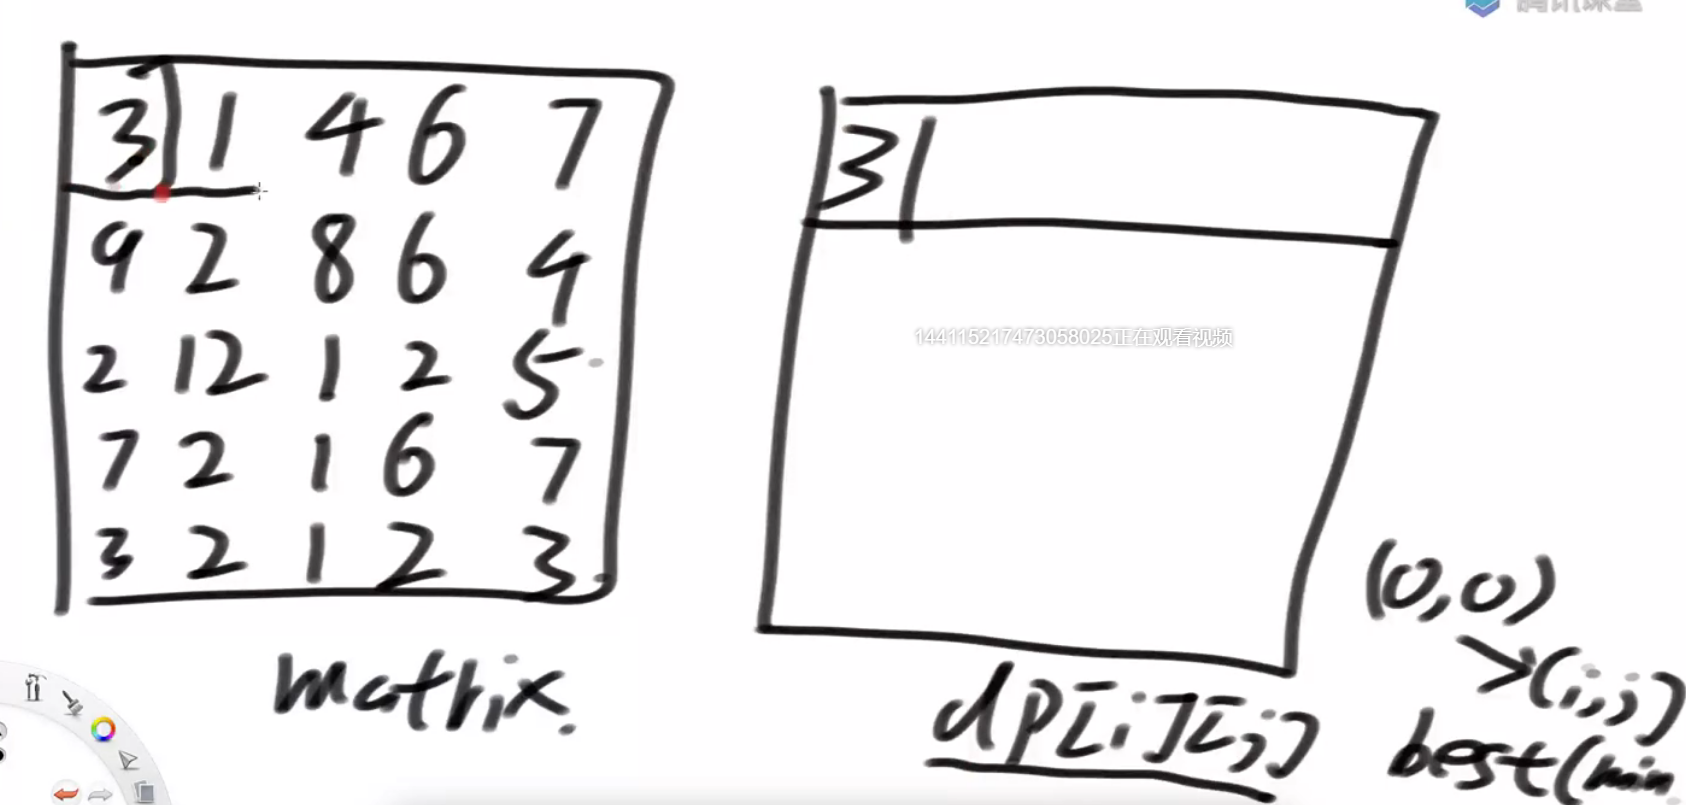 3 1 4 6 7
9 2 8 6 4
2 12 1 2 5
7 2 1 6 7
3 2 1 2 3
matrix.
3
144115217473058025正在观看视频
dp[i][j]
(0,0)
>(i,j)
best(min